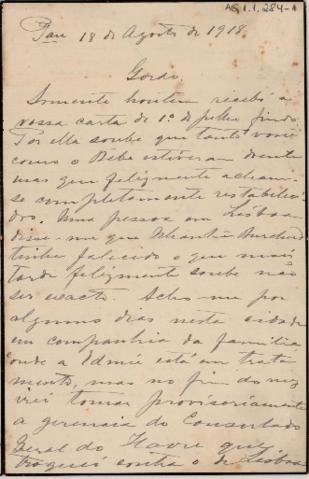 AG 1.1.284-1
Pau 18 de Agosto de 1918.
Gordo.
Somente hontem recebi a
vossa carta de 1º de julho findo
Por ella soube que tanto você
como o Bebe estiveram doente
mas que felizmente acham-
se completamente restabeleci-
dos. Uma pessoa em Lisboa
disse-me que
tinha falecido o que mais
tarde felizmente soube não
ser exacto. Acho-me por
alguns dias nesta cidade
em companhia da familia
onde a Edmée está em trata
mento, mas no fim do mez
irei tomar provisoriamente
a gerencia do Consulado
Geral do Havre que
troquei contra o de Lisboa